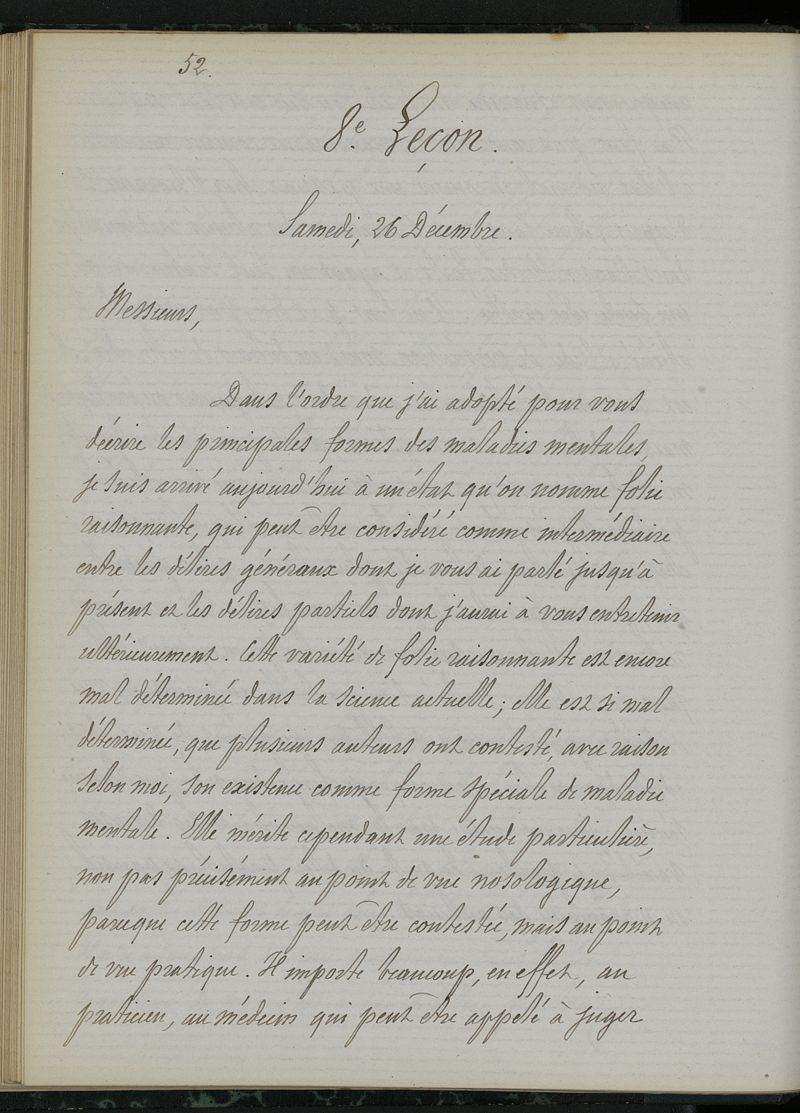 52.
8.e Leçon.
Samedi, 26 Décembre.
Messieurs,
Dans l'ordre que j'ai adopté pour vous
décrire les principales formes des maladies mentales,
je suis arrivé aujourd'hui à un état qu'on nomme folie
raisonnante, qui peut être considéré comme intermédiaire
entre les délires généraux dont je vous ai parlé jusqu'à
présent et les délires partiels dont j'aurai à vous entretenir
ultérieurement. Cette variété de folie raisonnante est encore
mal déterminée dans la science actuelle; elle est si mal
déterminée, que plusieurs auteurs ont contesté, avec raison
selon moi, son existence comme forme spéciale de maladie
mentale. Elle mérite cependant une étude particulière,
non pas précisément au point de vue nosologique,
parceque cette forme peut être contestée, mais au point
de vue pratique. Il importe beaucoup, en effet, au
praticien, au médecin qui peut être appelé à juger